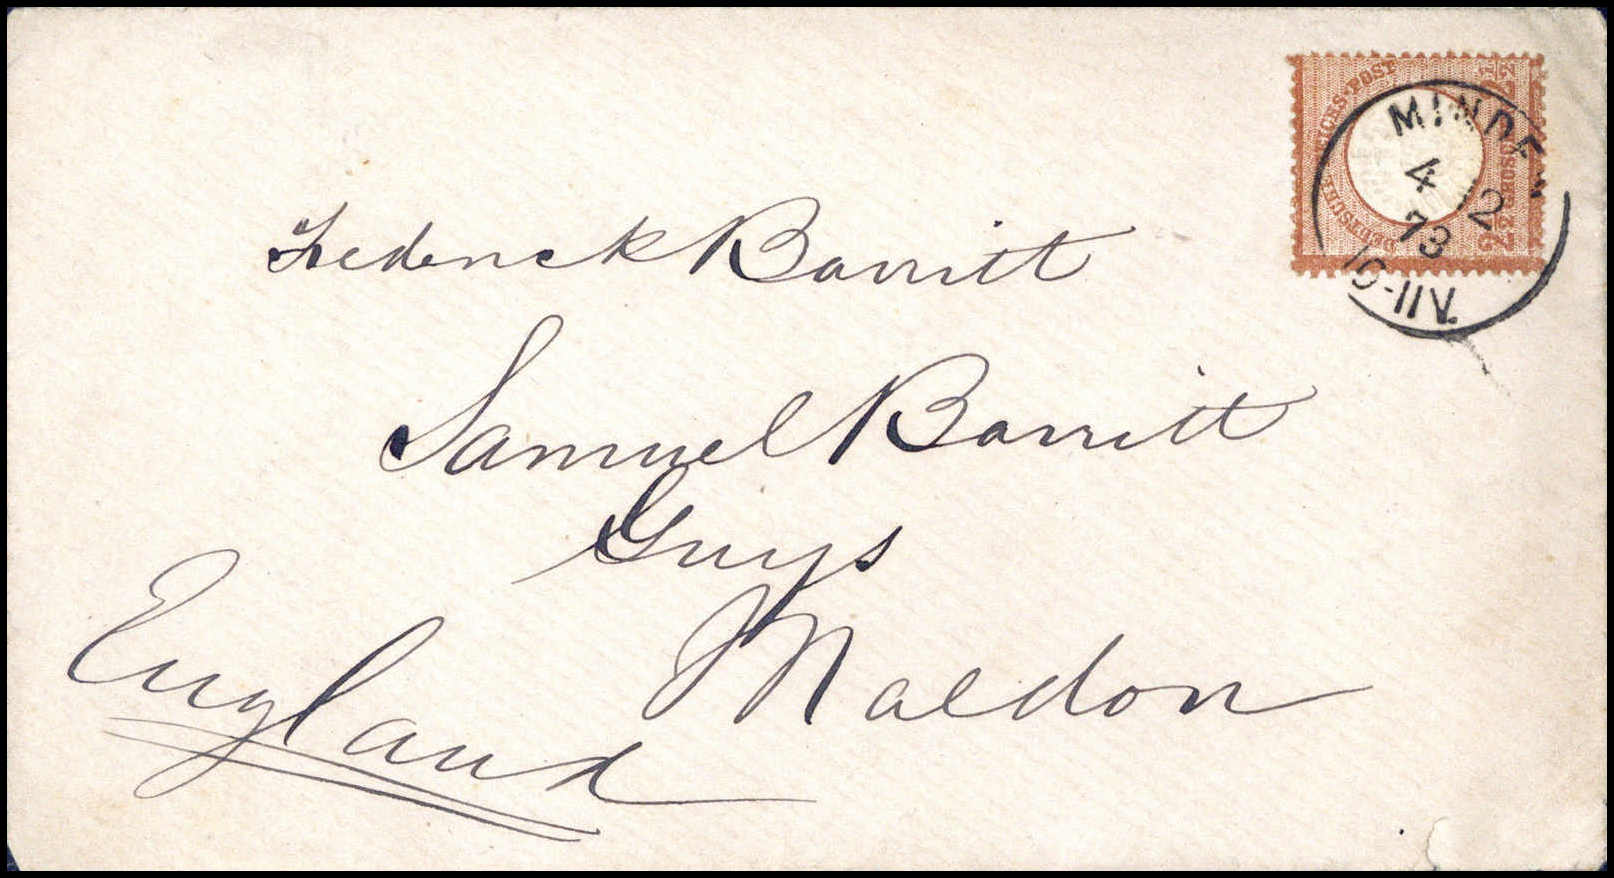 DEUTSCHE REICHS-POST
2½ GROSCHEN 2½
MINDEN
4 12
73
10-11V.
Frederick Barritt
Samuel Barritt
Guys
Maldon
England